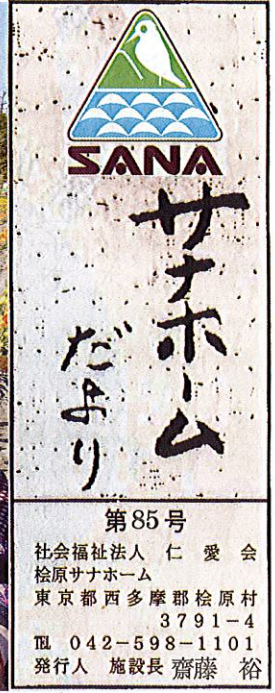 SANA
サナホーム
だより
第85号
社会福祉法人 仁愛会
桧原サナホーム
東京都西多摩郡桧原村
3791-4
℡ 042-598-1101
発行人 施設長 齋藤 裕